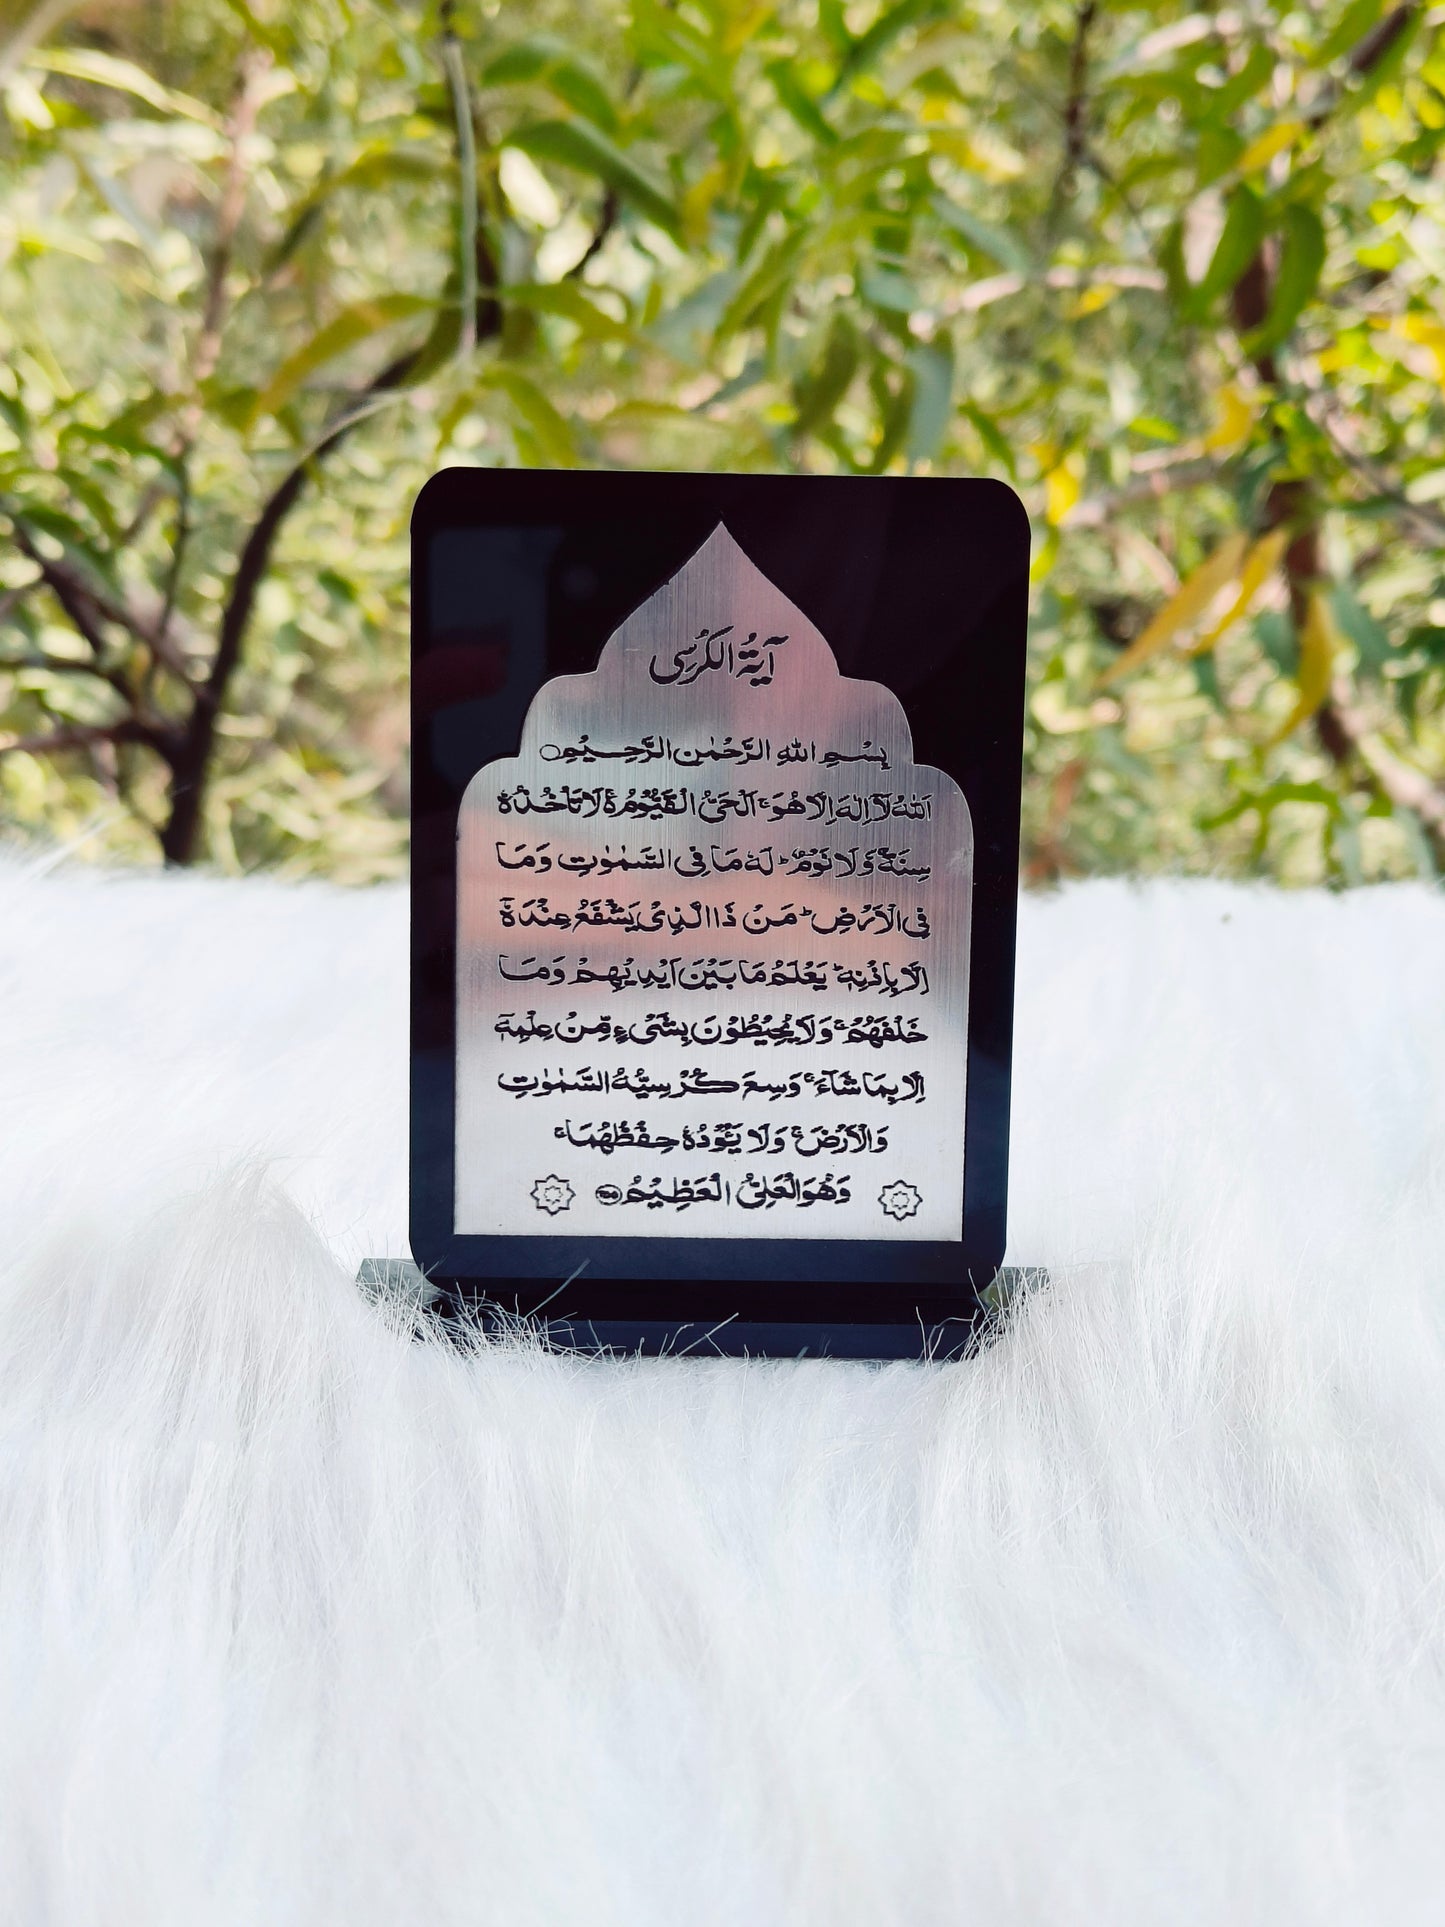 آيَةُ الْكُرْسِى
بِسْمِ اللّٰهِ الرَّحْمٰنِ الرَّحِيْمِ
اَللّٰهُ لَآ اِلٰهَ اِلَّا هُوَ ۚ اَلْحَىُّ الْقَيُّوْمُ ۚ لَا تَاْخُذُهٗ
سِنَةٌ وَّلَا نَوْمٌ ؕ لَهٗ مَا فِى السَّمٰوٰتِ وَمَا
فِى الْاَرْضِ ؕ مَنْ ذَا الَّذِىْ يَشْفَعُ عِنْدَهٗۤ
اِلَّا بِاِذْنِهٖ ؕ يَعْلَمُ مَا بَيْنَ اَيْدِيْهِمْ وَمَا
خَلْفَهُمْ ۚ وَلَا يُحِيْطُوْنَ بِشَىْءٍ مِّنْ عِلْمِهٖۤ
اِلَّا بِمَا شَآءَ ۚ وَسِعَ كُرْسِيُّهُ السَّمٰوٰتِ
وَالْاَرْضَ ۚ وَلَا يَئُوْدُهٗ حِفْظُهُمَا ۚ
وَهُوَ الْعَلِىُّ الْعَظِيْمُ ۝۲۵۵